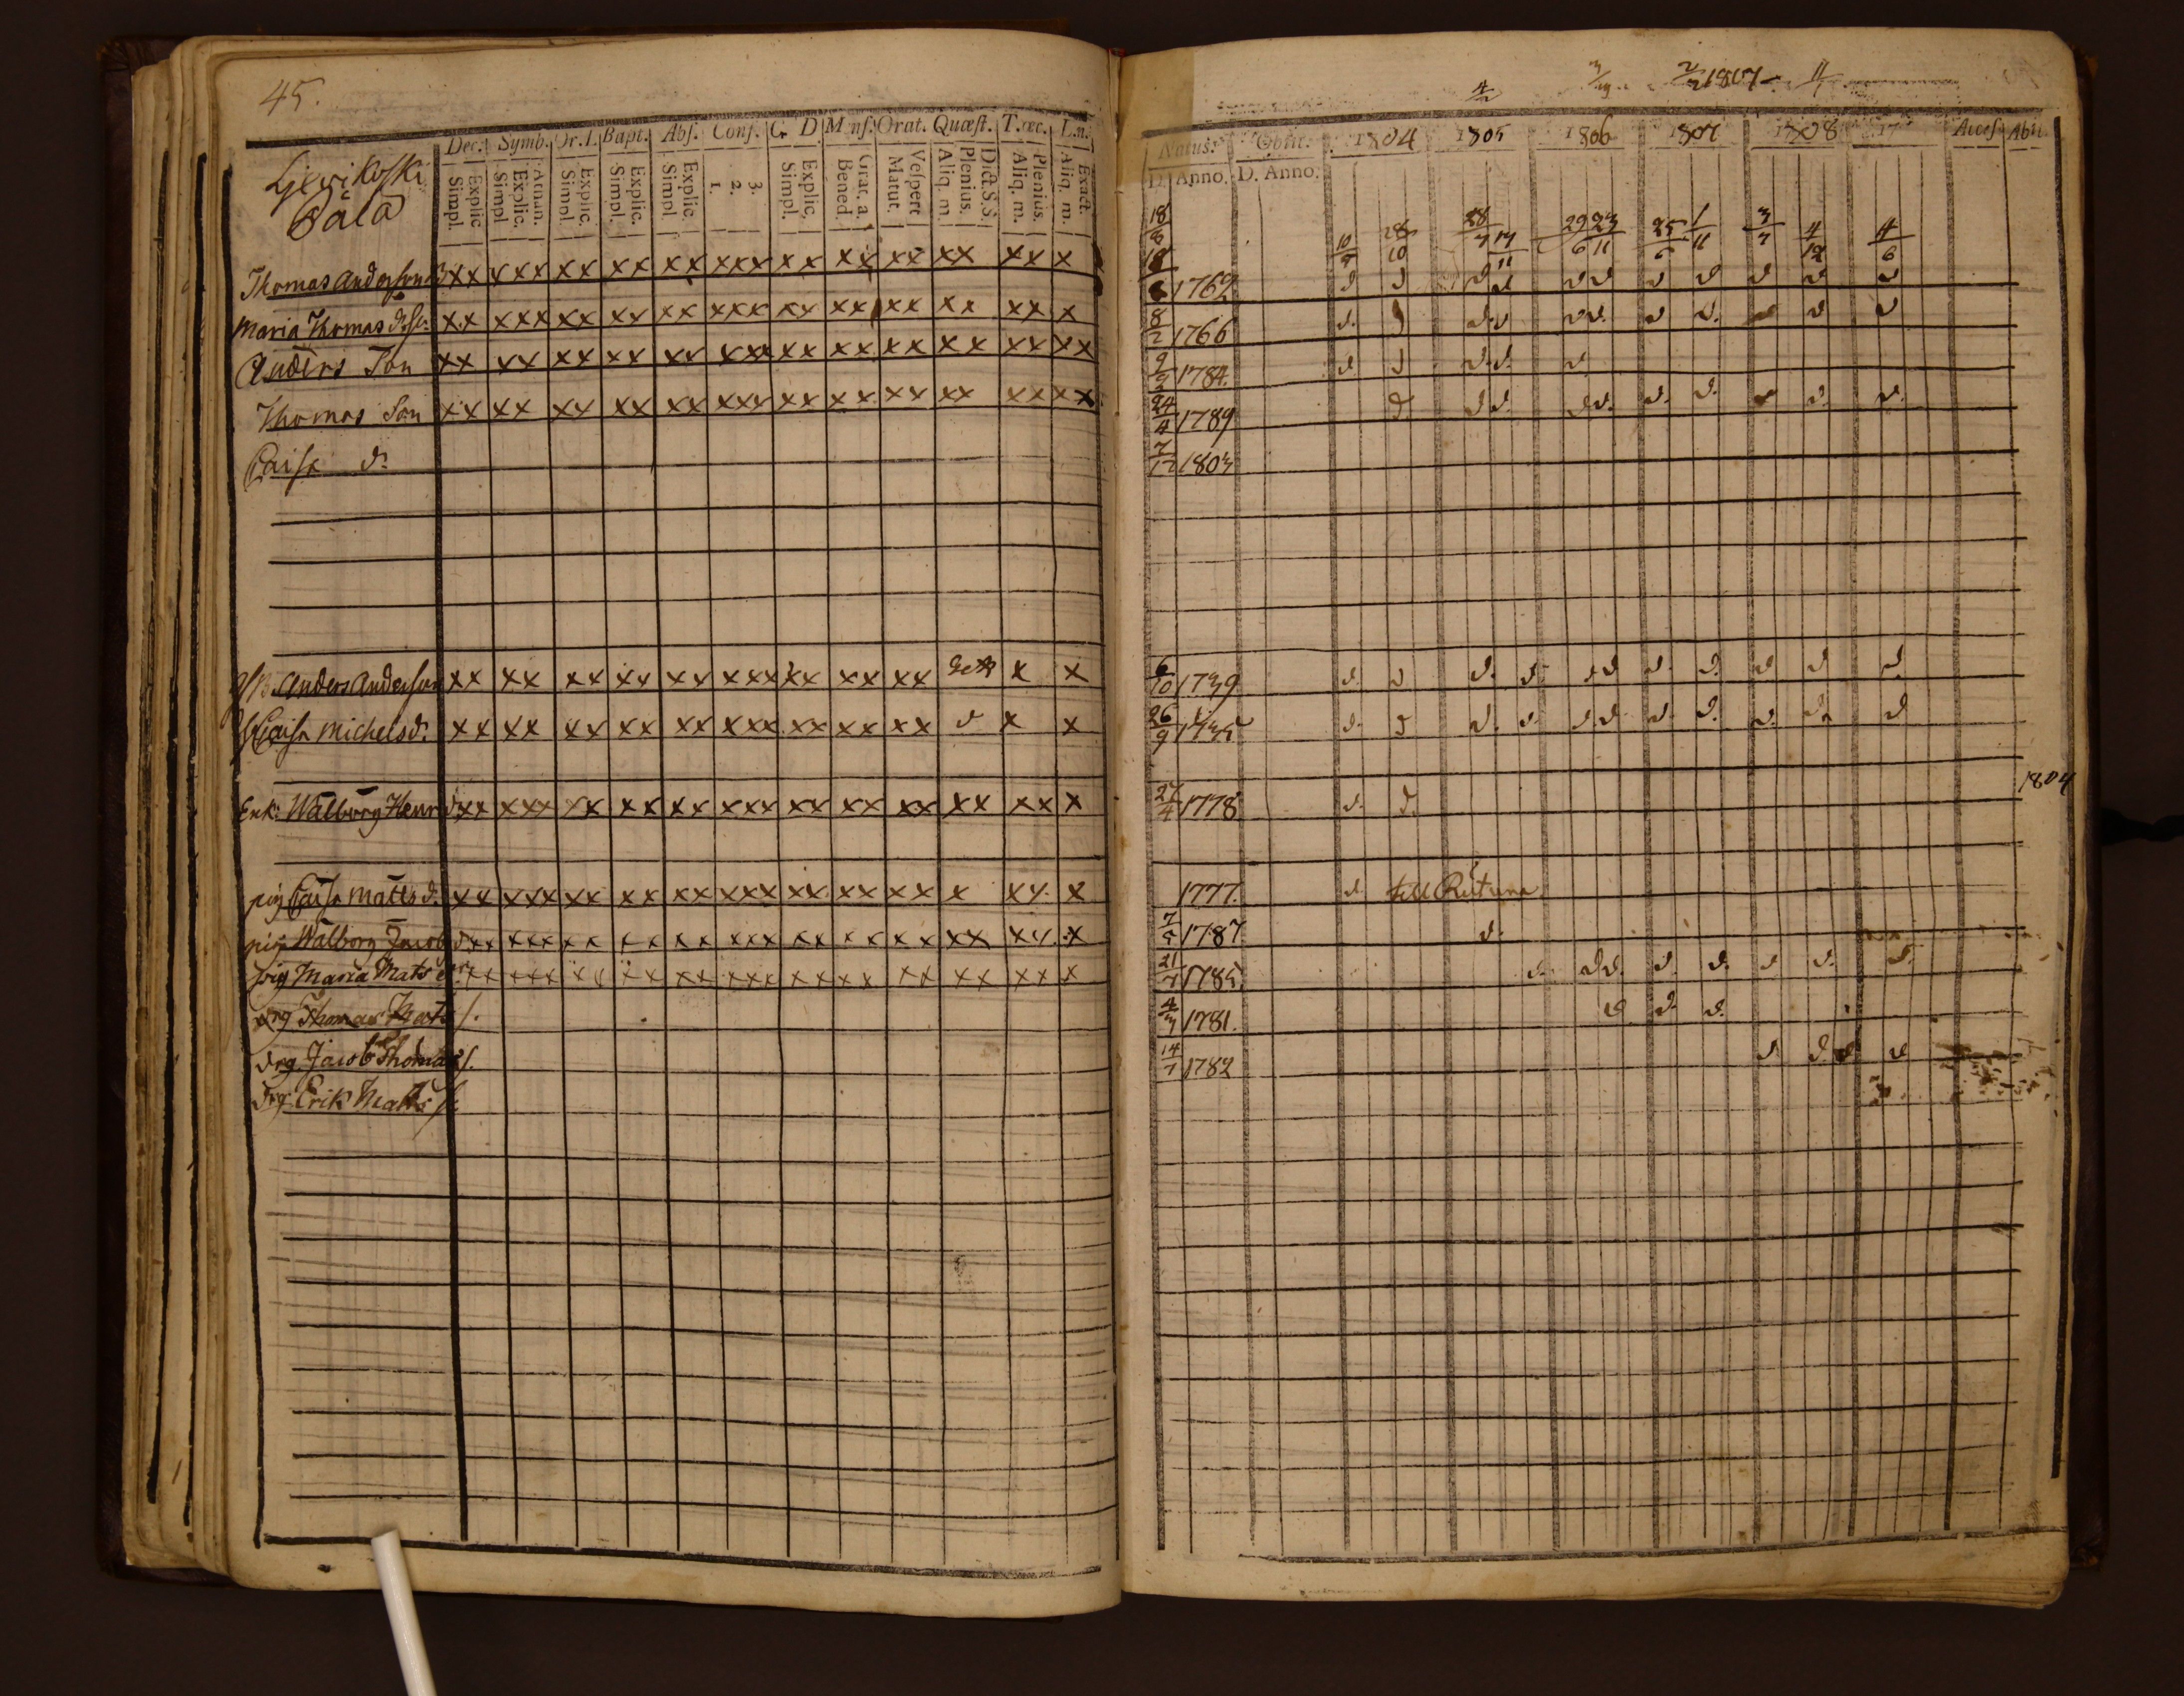 45.
Dec. Symb. Or. d. Bapt. Abs. Conf. C. D. Mens. Orat. Quæst. T. œc. L. n.
Explic. Simpl. Athan. Explic. Simpl. Explic. Simpl. Explic. Simpl. Explic. Simpl. 3. 2. 1. Explic. Simpl. Grat. a. Bened. Vespert Matut. Dict. S. S. Plenius. Aliq. m. Plenius. Aliq. m. Exact. Aliq. m.
Pala
Thomas Anderson xx xxx xx xx xx xxx xx xx xx xx xx x
Maria Thomas d. xx xxx xx xx xx xxx xx xx xx xx xx x
Anders Son xx xx xx xx xx xxx xx xx xx xx xx xx
Thomas Son xx xx xx xx xx xxx xx xx xx xx xx xx
Caisa d.
Anders Anderson xx xx xx xx xx xxx xx xx xx x x
Caisa Michels d. xx xx xx xx xx xxx xx xx xx x x
Enk: Walborg Henr d. xx xxx xx xx xx xxx xx xx xx xx xx x
pig Caisa Matts d. xx xxx xx xx xx xxx xx xx xx x xx x
pig Walborg Jacob d xx xxx xx xx xx xxx xx xx xx xx xx x
pig Maria Mats d. xx xxx xx xx xx xxx xx xx xx xx xx x
drg Thomas Mats s.
drg. Jacob Thomas s.
drg. Erik Matts s.
1807
Natus. Obiit. 1804 1805 1806 1807 1808 17 Acces. Abii.
D. Anno. D. Anno.
18/8
10/7 28/10 28/7 17/11 29/6 23/11 25/6 1/11 3/7 4/12 4/6
1762 d d d d d d d d d d d
8/2 1766 d. d d. d d d. d d. d d d
9/2 1784. d. d d. d. d.
24/4 1789 d. d d. d d. d. d. d d. d.
7/12 1803
6/10 1739 d. d d. d. d d d. d. d d d.
26/9 d. d d. d. d d. d. d. d. d. d
27/4 1778 d. d. 1804
1777. d. till Rutuna
7/5 1787 d.
21/7 1785. d. d d. d. d. d d. d.
4/3 1781. d d. d.
14/7 1782 d. d. d d